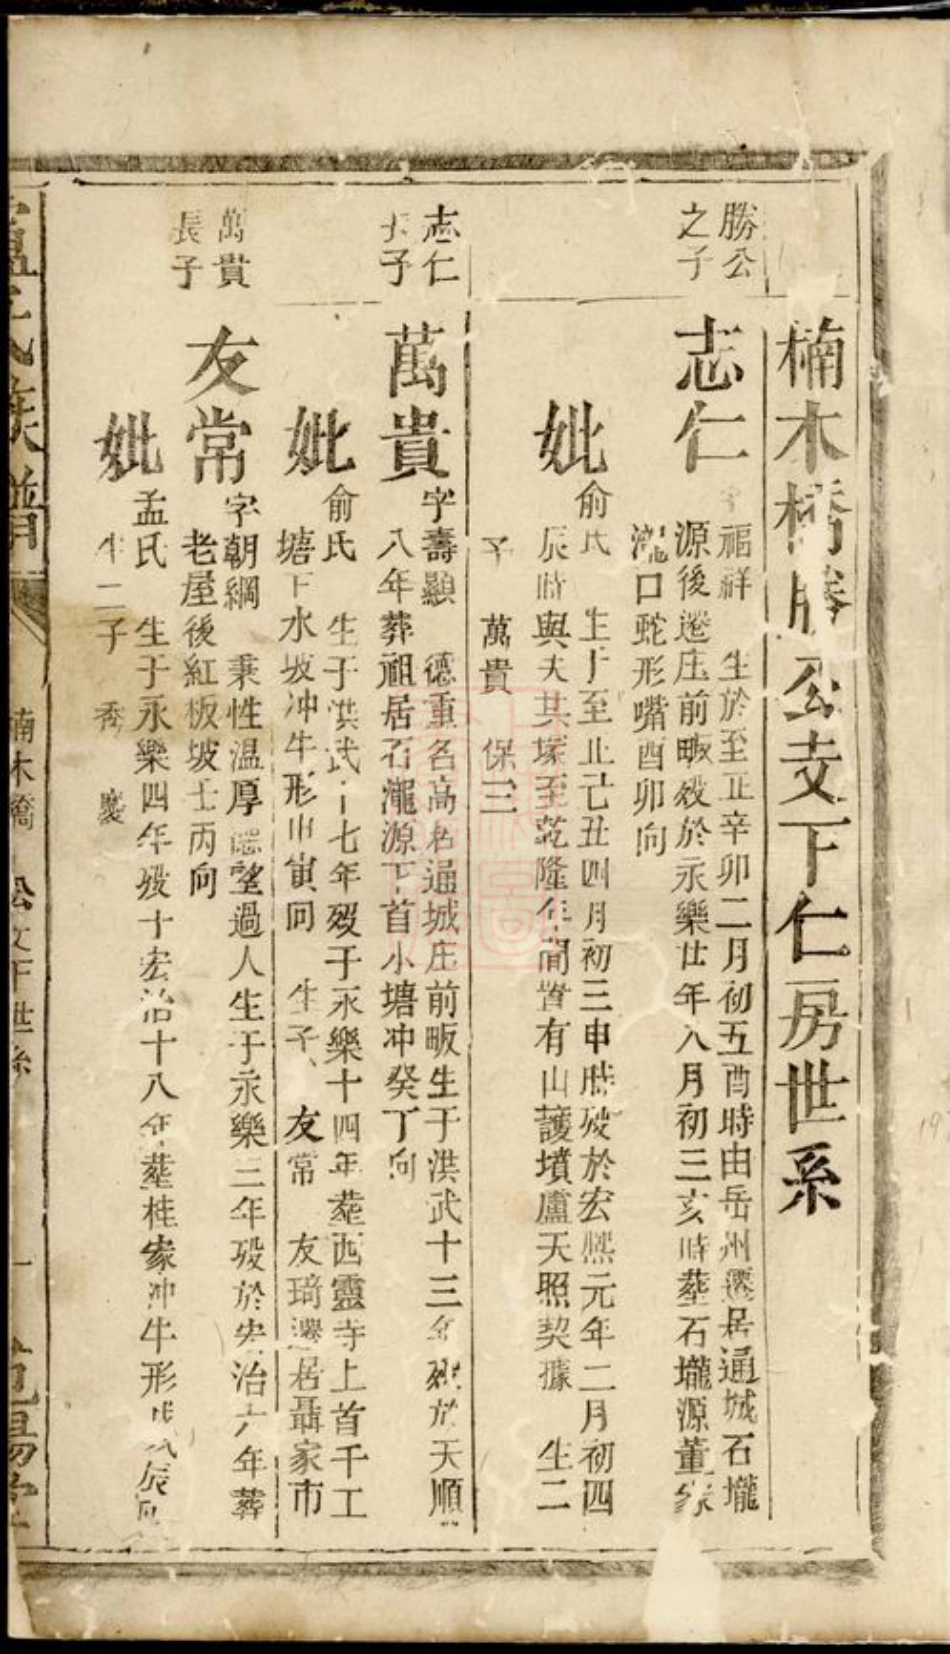 楠木橋勝公支下仁房世系
勝公
之子
志仁
福祥 生於至正辛卯二月初五酉時由岳州遷居通城石壠
源後遷庄前畈歿於永樂廿年八月初三亥時塟石壠源董家
瀧口蛇形嘴酉卯向
妣
俞氏 生于至正己丑四月初三申時歿於宏熙元年二月初四
辰時與夫共塚至乾隆年間置有山護墳盧天照契據 生二
子 萬貴 保三
志仁
長子
萬貴
字壽顯 德重名高居通城庄前畈生于洪武十三年歿於天順
八年葬祖居石瀧源下首小塘冲癸丁向
妣
俞氏 生于洪武十七年歿于永樂十四年塟西靈寺上首千工
塘下水坡冲牛形山寅向 生子 友常 友琦遷居聶家市
萬貴
長子
友常
字朝綱 秉性温厚德望過人生于永樂三年歿於宏治六年葬
老屋後紅板坡壬丙向
妣
孟氏 生于永樂四年歿于宏治十八年塟桂家冲牛形戌辰向
生二子 秀 慶
氏族譜
楠木橋 公支下世系
一